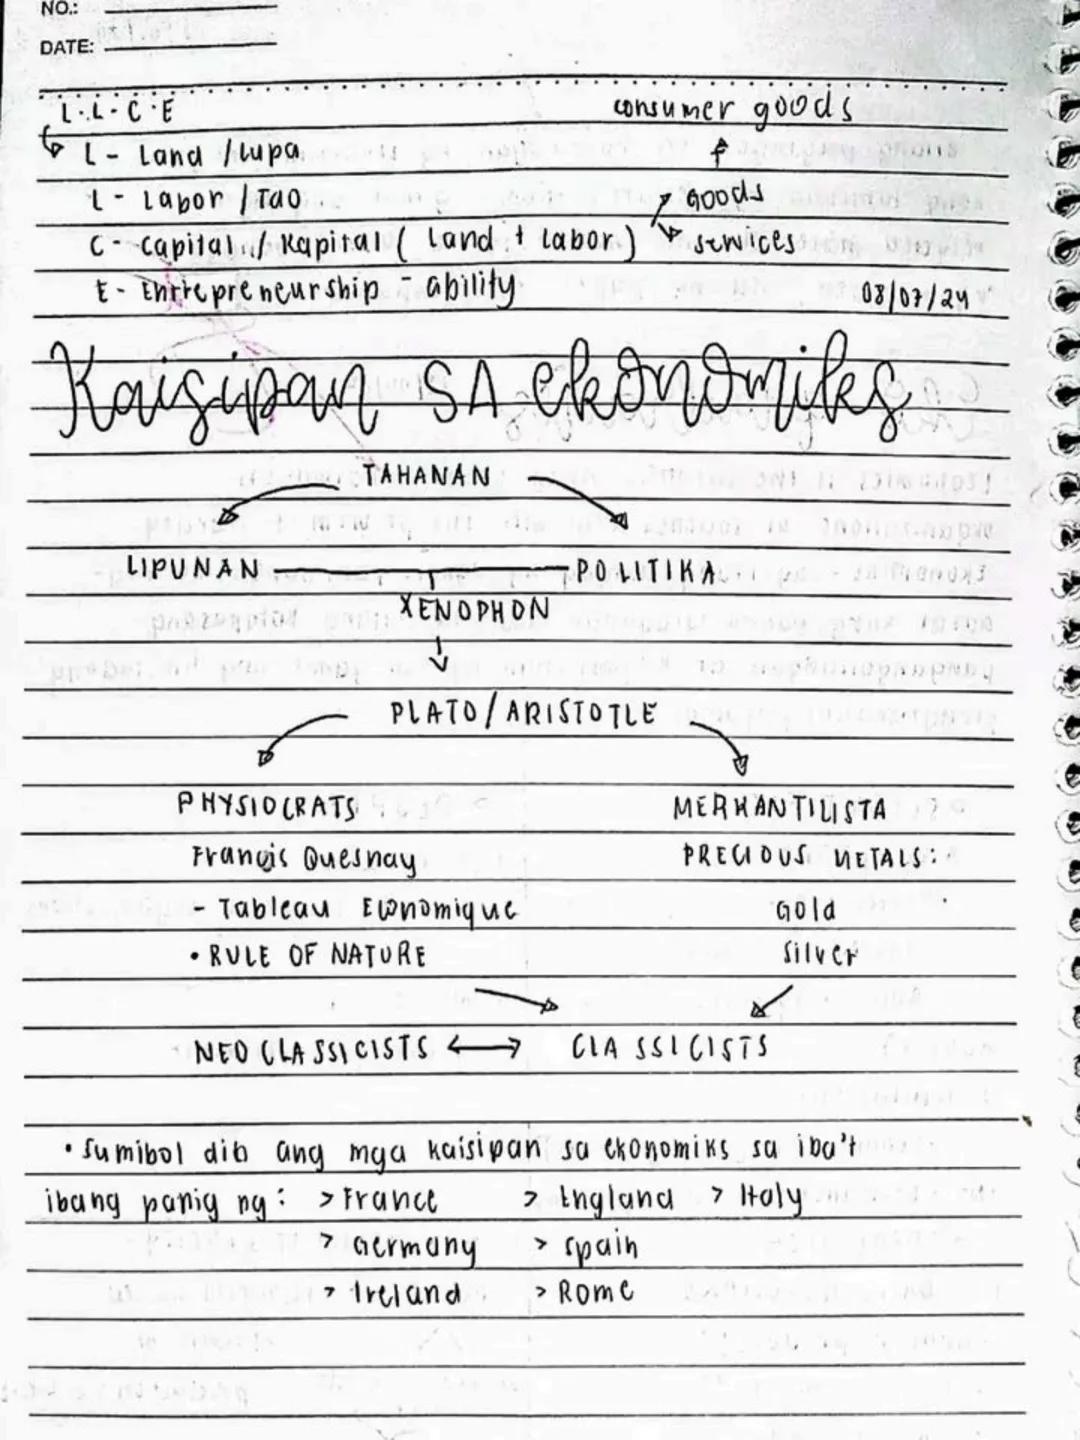 NO.:
DATE:
L.L.C.E consumer goods
L - Land /Lupa
L - Labor / Tao goods
C - Capital / Kapital ( Land + Labor ) services
E - Entrepreneurship - ability 08/07/24
Kaisipan SA ekonomiks
TAHANAN
LIPUNAN POLITIKA
XENOPHON
PLATO/ARISTOTLE
PHYSIOCRATS MERKANTILISTA
Francis Quesnay PRECIOUS METALS:
- Tableau Economique Gold
• RULE OF NATURE Silver
NEO CLASSICISTS ↔ CLASSICISTS
• Sumibol dib ang mga kaisipan sa ekonomiks sa iba't
ibang panig ng: > France > England > Italy
> Germany > Spain
> Ireland > Rome